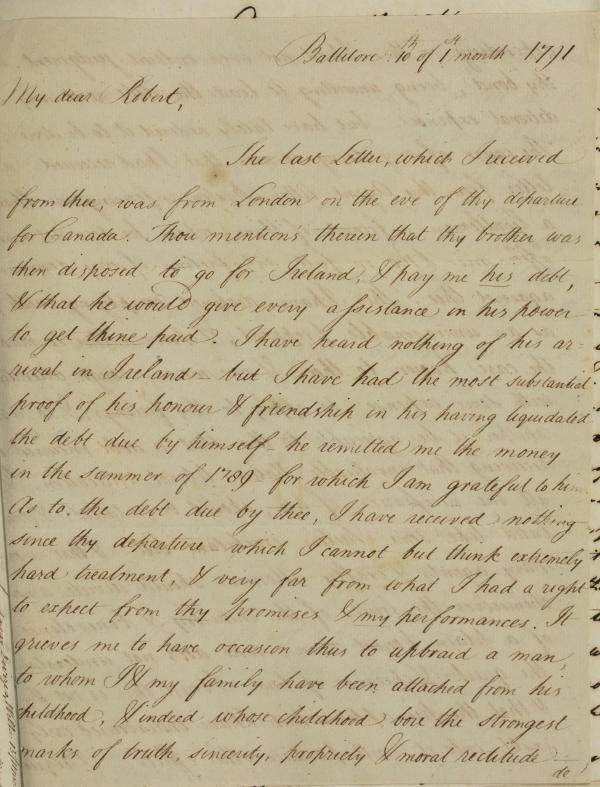 Ballitore 10th of 1st month 1791
My dear Robert,
The last Letter, which I received
from thee, was from London on the eve of thy departure
for Canada. Thou mentions therein that thy brother was
then disposed to go for Ireland, & pay me his debt,
& that he would give every assistance in his power
to get thine paid. I have heard nothing of his ar=
rival in Ireland – but I have had the most substantial
proof of his honour & friendship in his having liquidated
the debt due by himself – he remitted me the money
in the summer of 1789 for which I am grateful to him.
As to the debt due by thee, I have received nothing
since thy departure which I cannot but think extremely
hard treatment, & very far from what I had a right
to expect from thy promises & my performances. It
grieves me to have occasion thus to upbraid a man,
to whom I & my family have been attached from his
childhood, & indeed whose childhood bore the strongest
marks of truth, sincerity, propriety & moral rectitude –
de